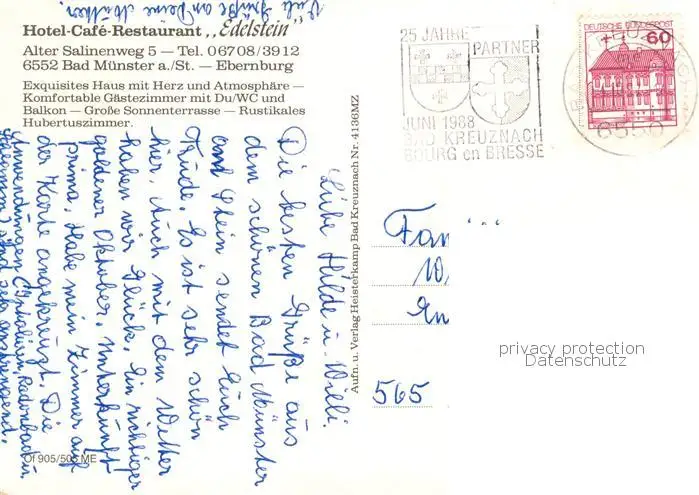 Viele Grüße an Deine Mutter.
Hotel-Café-Restaurant „Edelstein"
Alter Salinenweg 5 — Tel. 06708/3912
6552 Bad Münster a./St. — Ebernburg
Exquisites Haus mit Herz und Atmosphäre —
Komfortable Gästezimmer mit Du/WC und
Balkon — Große Sonnenterrasse — Rustikales
Hubertuszimmer.
25 JAHRE
PARTNER
JUNI 1988
BAD KREUZNACH
BOURG en BRESSE
DEUTSCHE BUNDESPOST
60
6550
Liebe Hilde u. Willi.
Die besten Grüße aus
dem schönen Bad Münster
am Stein sendet Euch
Trude. Es ist sehr schön
hier. Auch mit dem Wetter
haben wir Glück. Ein richtiger
goldener Oktober. Unterkunft
prima. Habe mein Zimmer auf
der Karte angekreuzt. Die
Anwendungen (Inhalieren, Radonbad u.
sind sehr anstrengend.
Aufn. u. Verlag Heisterkamp Bad Kreuznach Nr. 4136MZ
Fam
565
Of 905/505 ME
privacy protection
Datenschutz